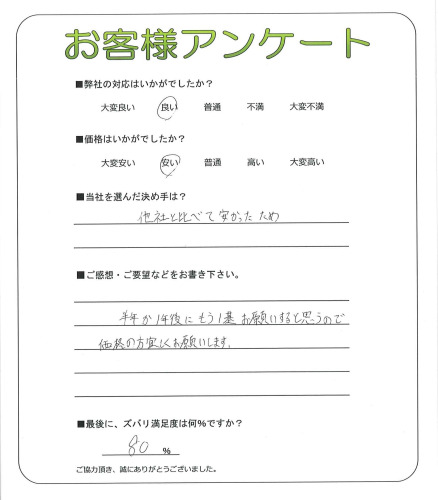 お客様アンケート
■弊社の対応はいかがでしたか？
大変良い 良い 普通 不満 大変不満
■価格はいかがでしたか？
大変安い 安い 普通 高い 大変高い
■当社を選んだ決め手は？
他社と比べて安かったため
■ご感想・ご要望などをお書き下さい。
半年か1年後にもう1基お願いすると思うので
価格の方宜しくお願いします。
■最後に、ズバリ満足度は何％ですか？
80 ％
ご協力頂き、誠にありがとうございました。